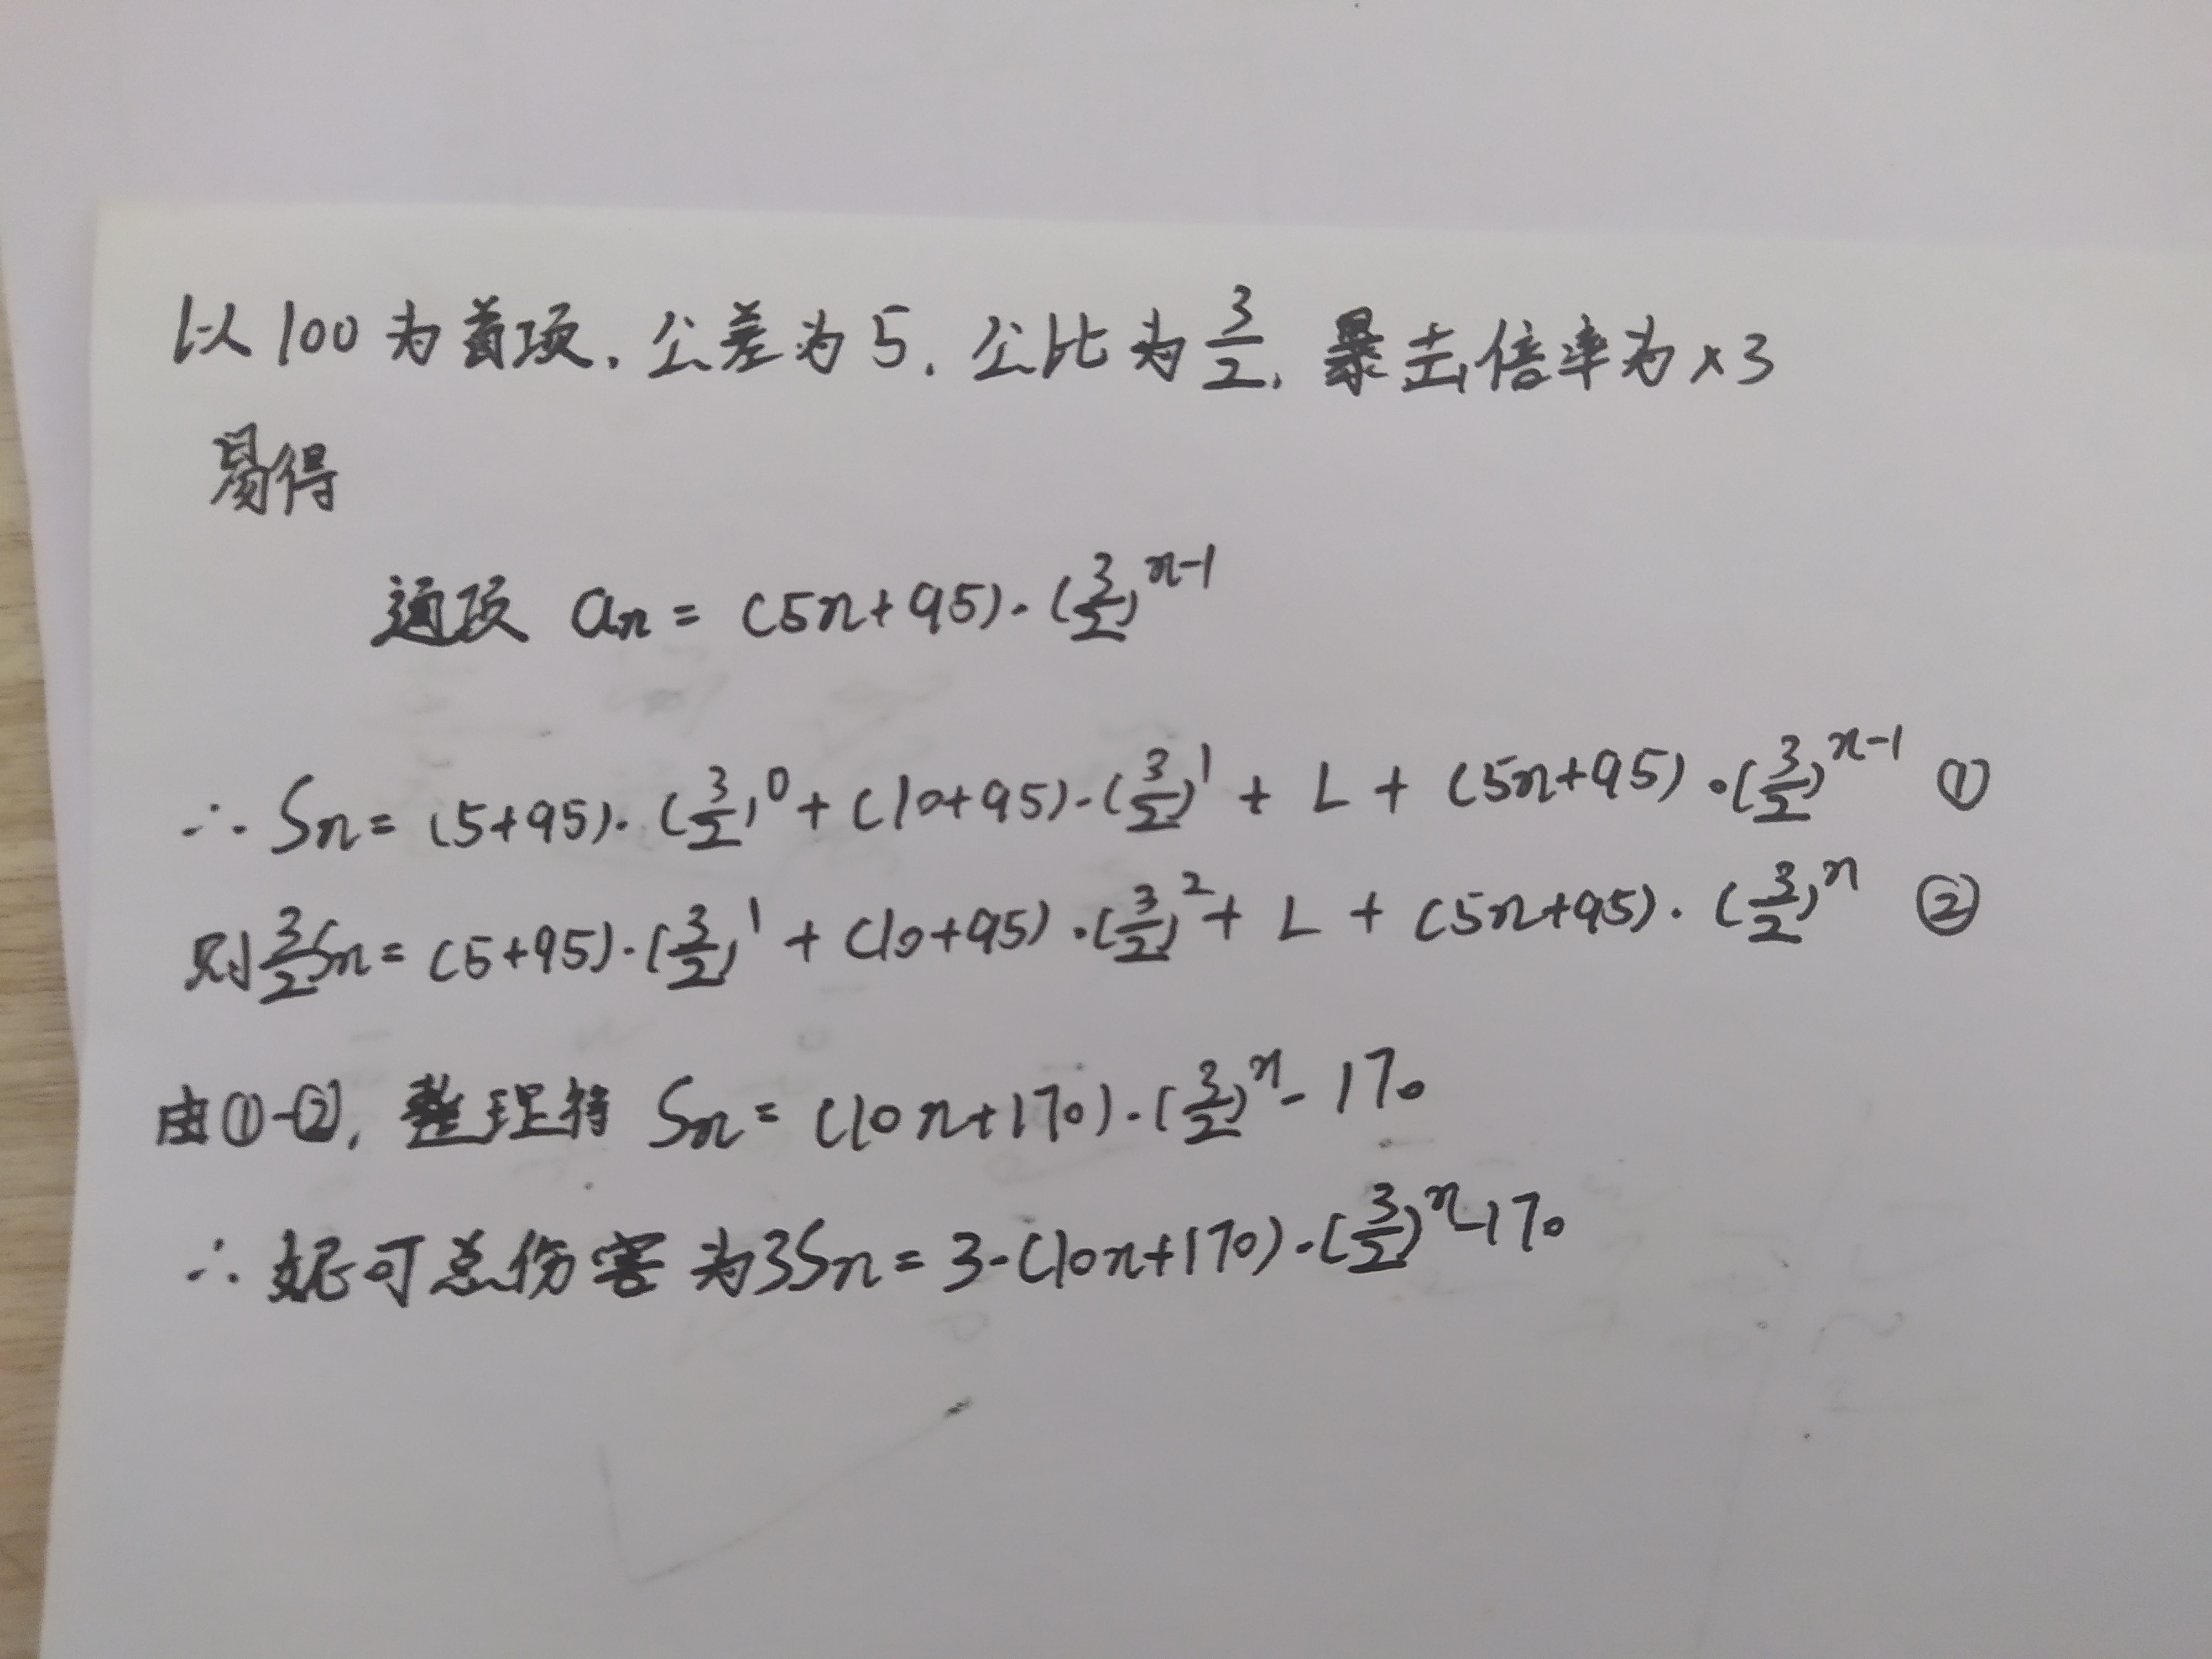 以100为首项，公差为5，公比为3/2，暴击倍率为×3
易得
通项 an = (5n+95)·(3/2)^(n-1)
∴ Sn = (5+95)·(3/2)^0 + (10+95)·(3/2)^1 + L + (5n+95)·(3/2)^(n-1) ①
则 3/2 Sn = (5+95)·(3/2)^1 + (10+95)·(3/2)^2 + L + (5n+95)·(3/2)^n ②
由①-②，整理得 Sn = (10n+170)·(3/2)^n - 170
∴ 妮可总伤害为3Sn = 3·(10n+170)·(3/2)^n - 170